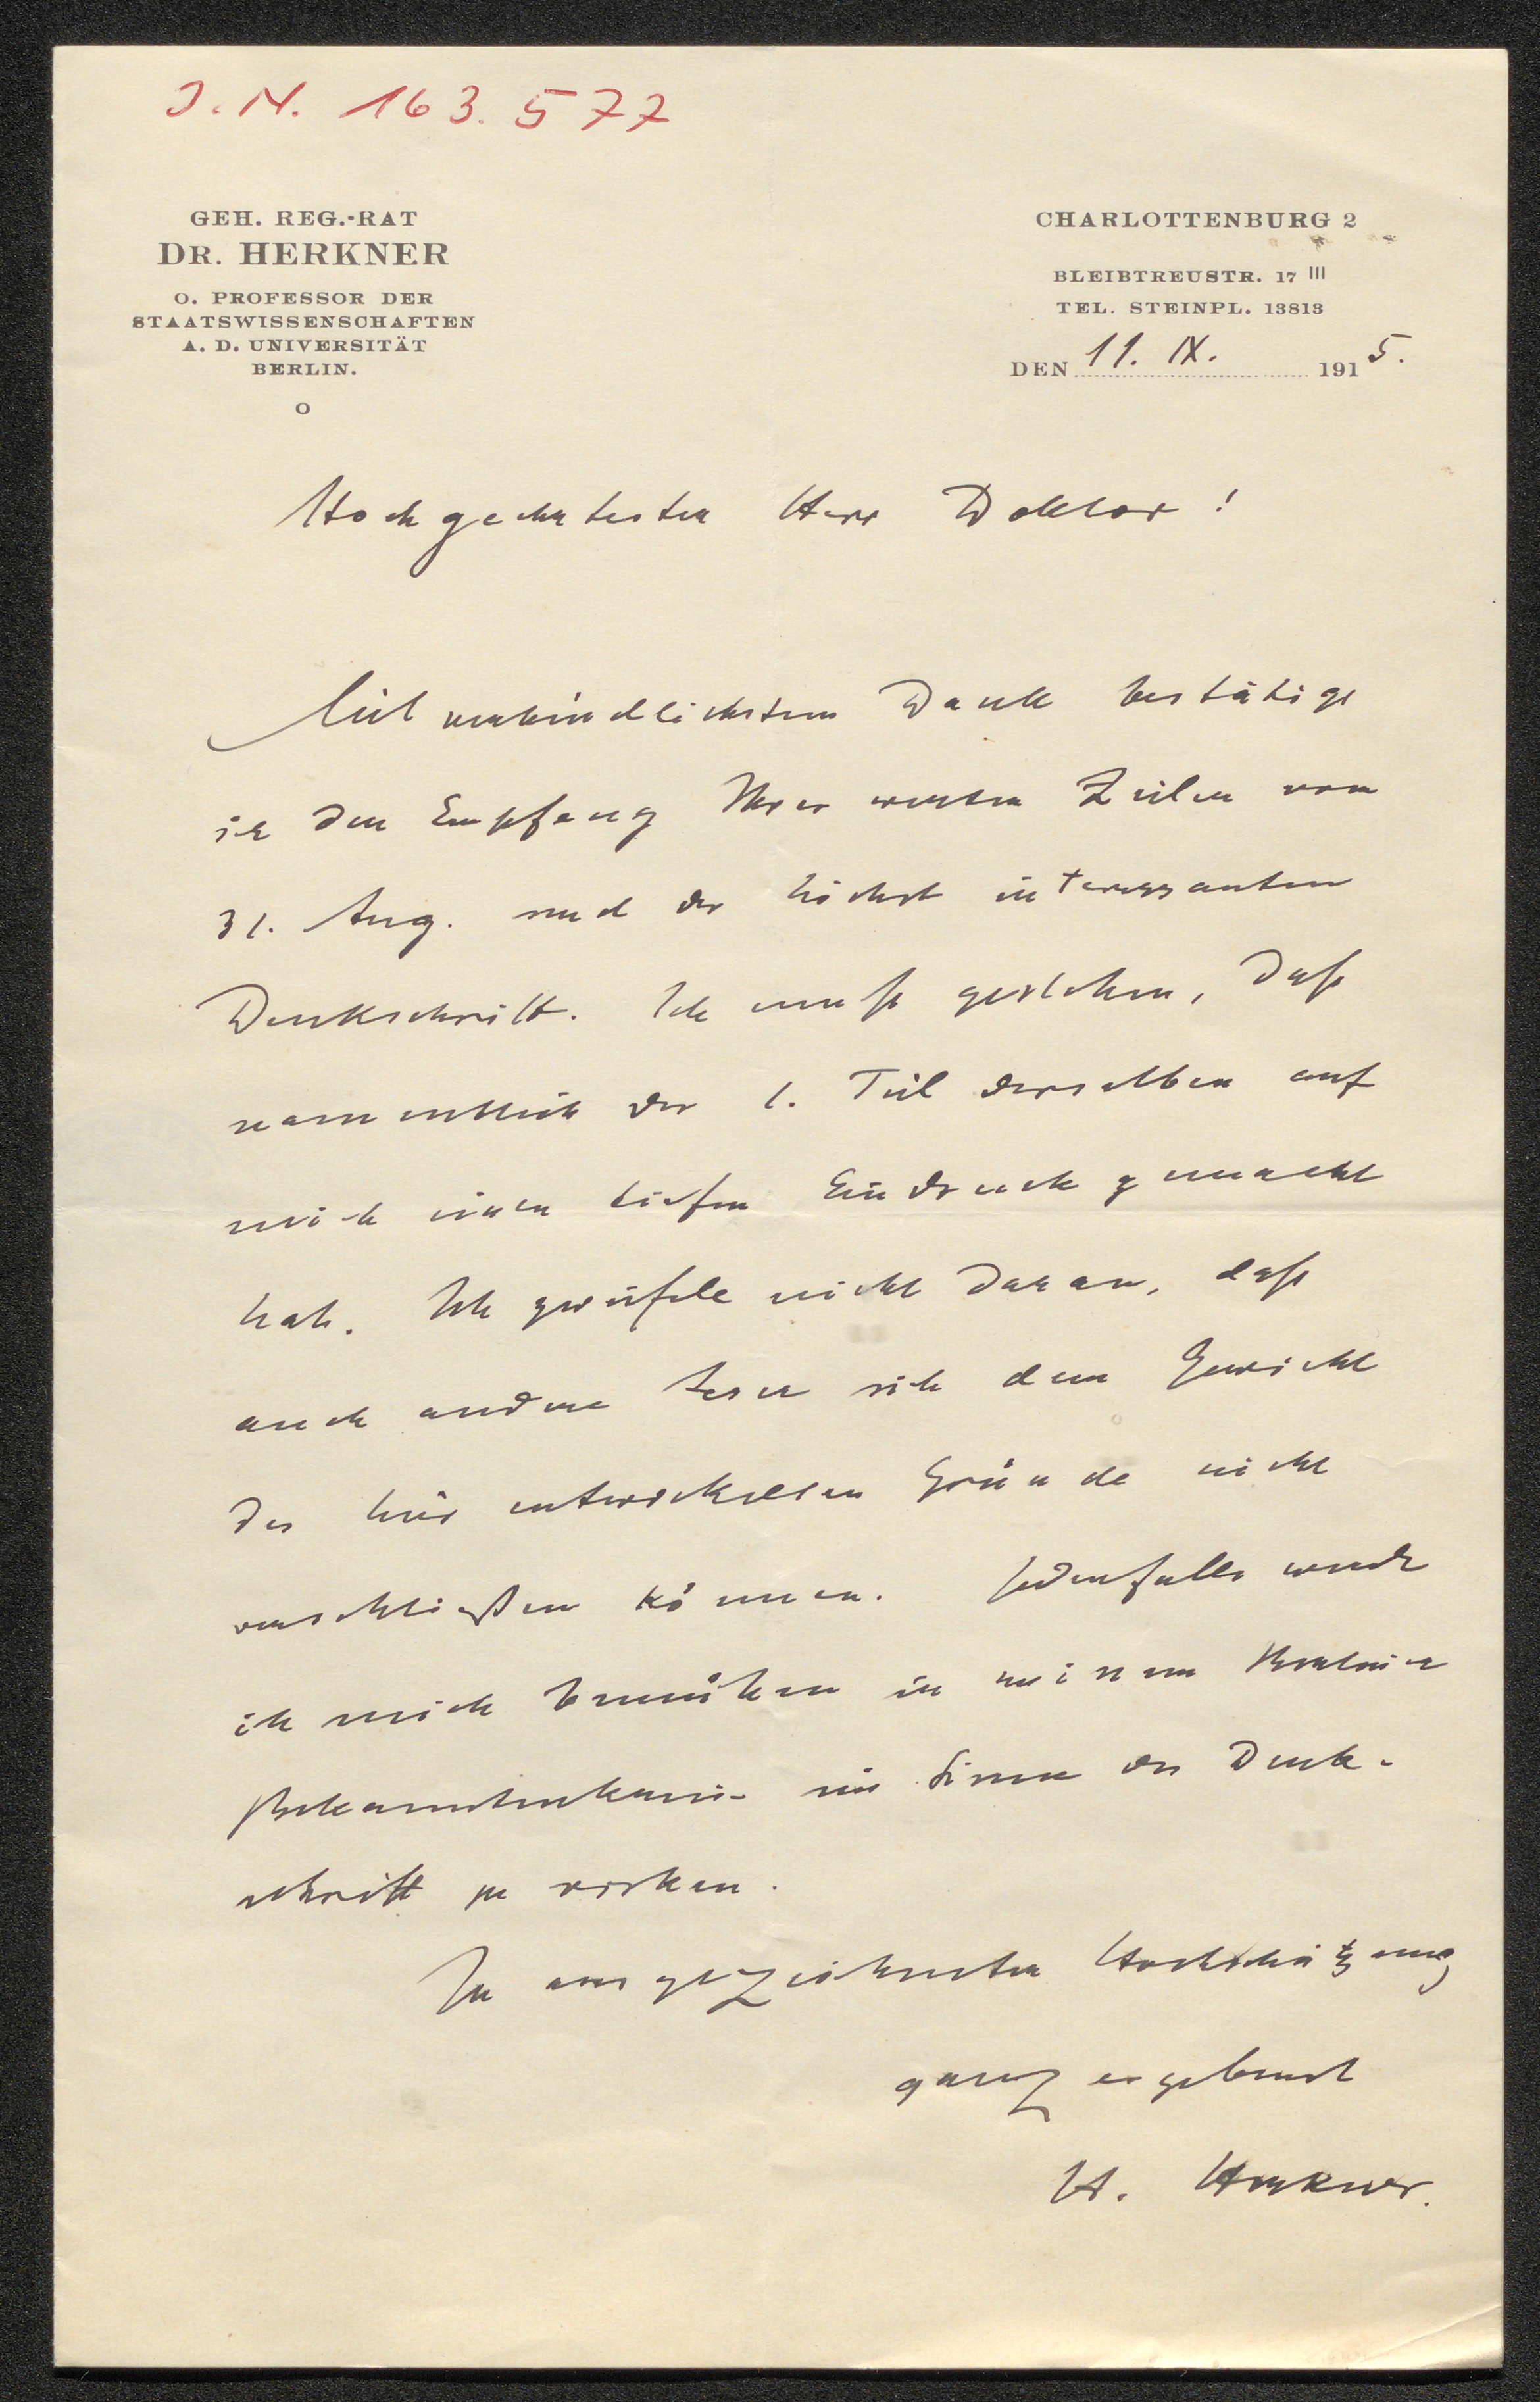 J.N. 163.577
GEH. REG.-RAT
DR. HERKNER
O. PROFESSOR DER
STAATSWISSENSCHAFTEN
A. D. UNIVERSITÄT
BERLIN.
O
CHARLOTTENBURG 2
BLEIBTREUSTR. 17 III
TEL. STEINPL. 13813
DEN 11. IX. 1915.
Hochgeehrtester Herr Doktor!
Mit verbindlichstem Dank bestätige
ich den Empfang Ihrer werten Zeilen vom
31. Aug. und der höchst interessanten
Denkschrift. Ich muß gestehen, daß
namentlich der 1. Teil derselben auf
mich einen tiefen Eindruck gemacht
hat. Ich zweifele nicht daran, daß
auch andere Leser sich dem Gewicht
der hier entwickelten Gründe nicht
verschließen können. Jedenfalls werde
ich mich bemühen in meinem Berliner
Bekanntenkreis im Sinne der Denk-
schrift zu wirken.
In ausgezeichneter Hochschätzung
ganz ergebenst
H. Herkner.